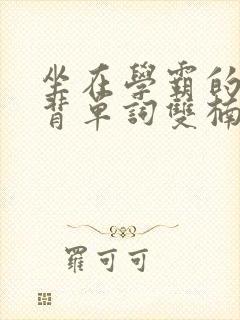 坐在學霸的
背單詞雙楠
羅可可